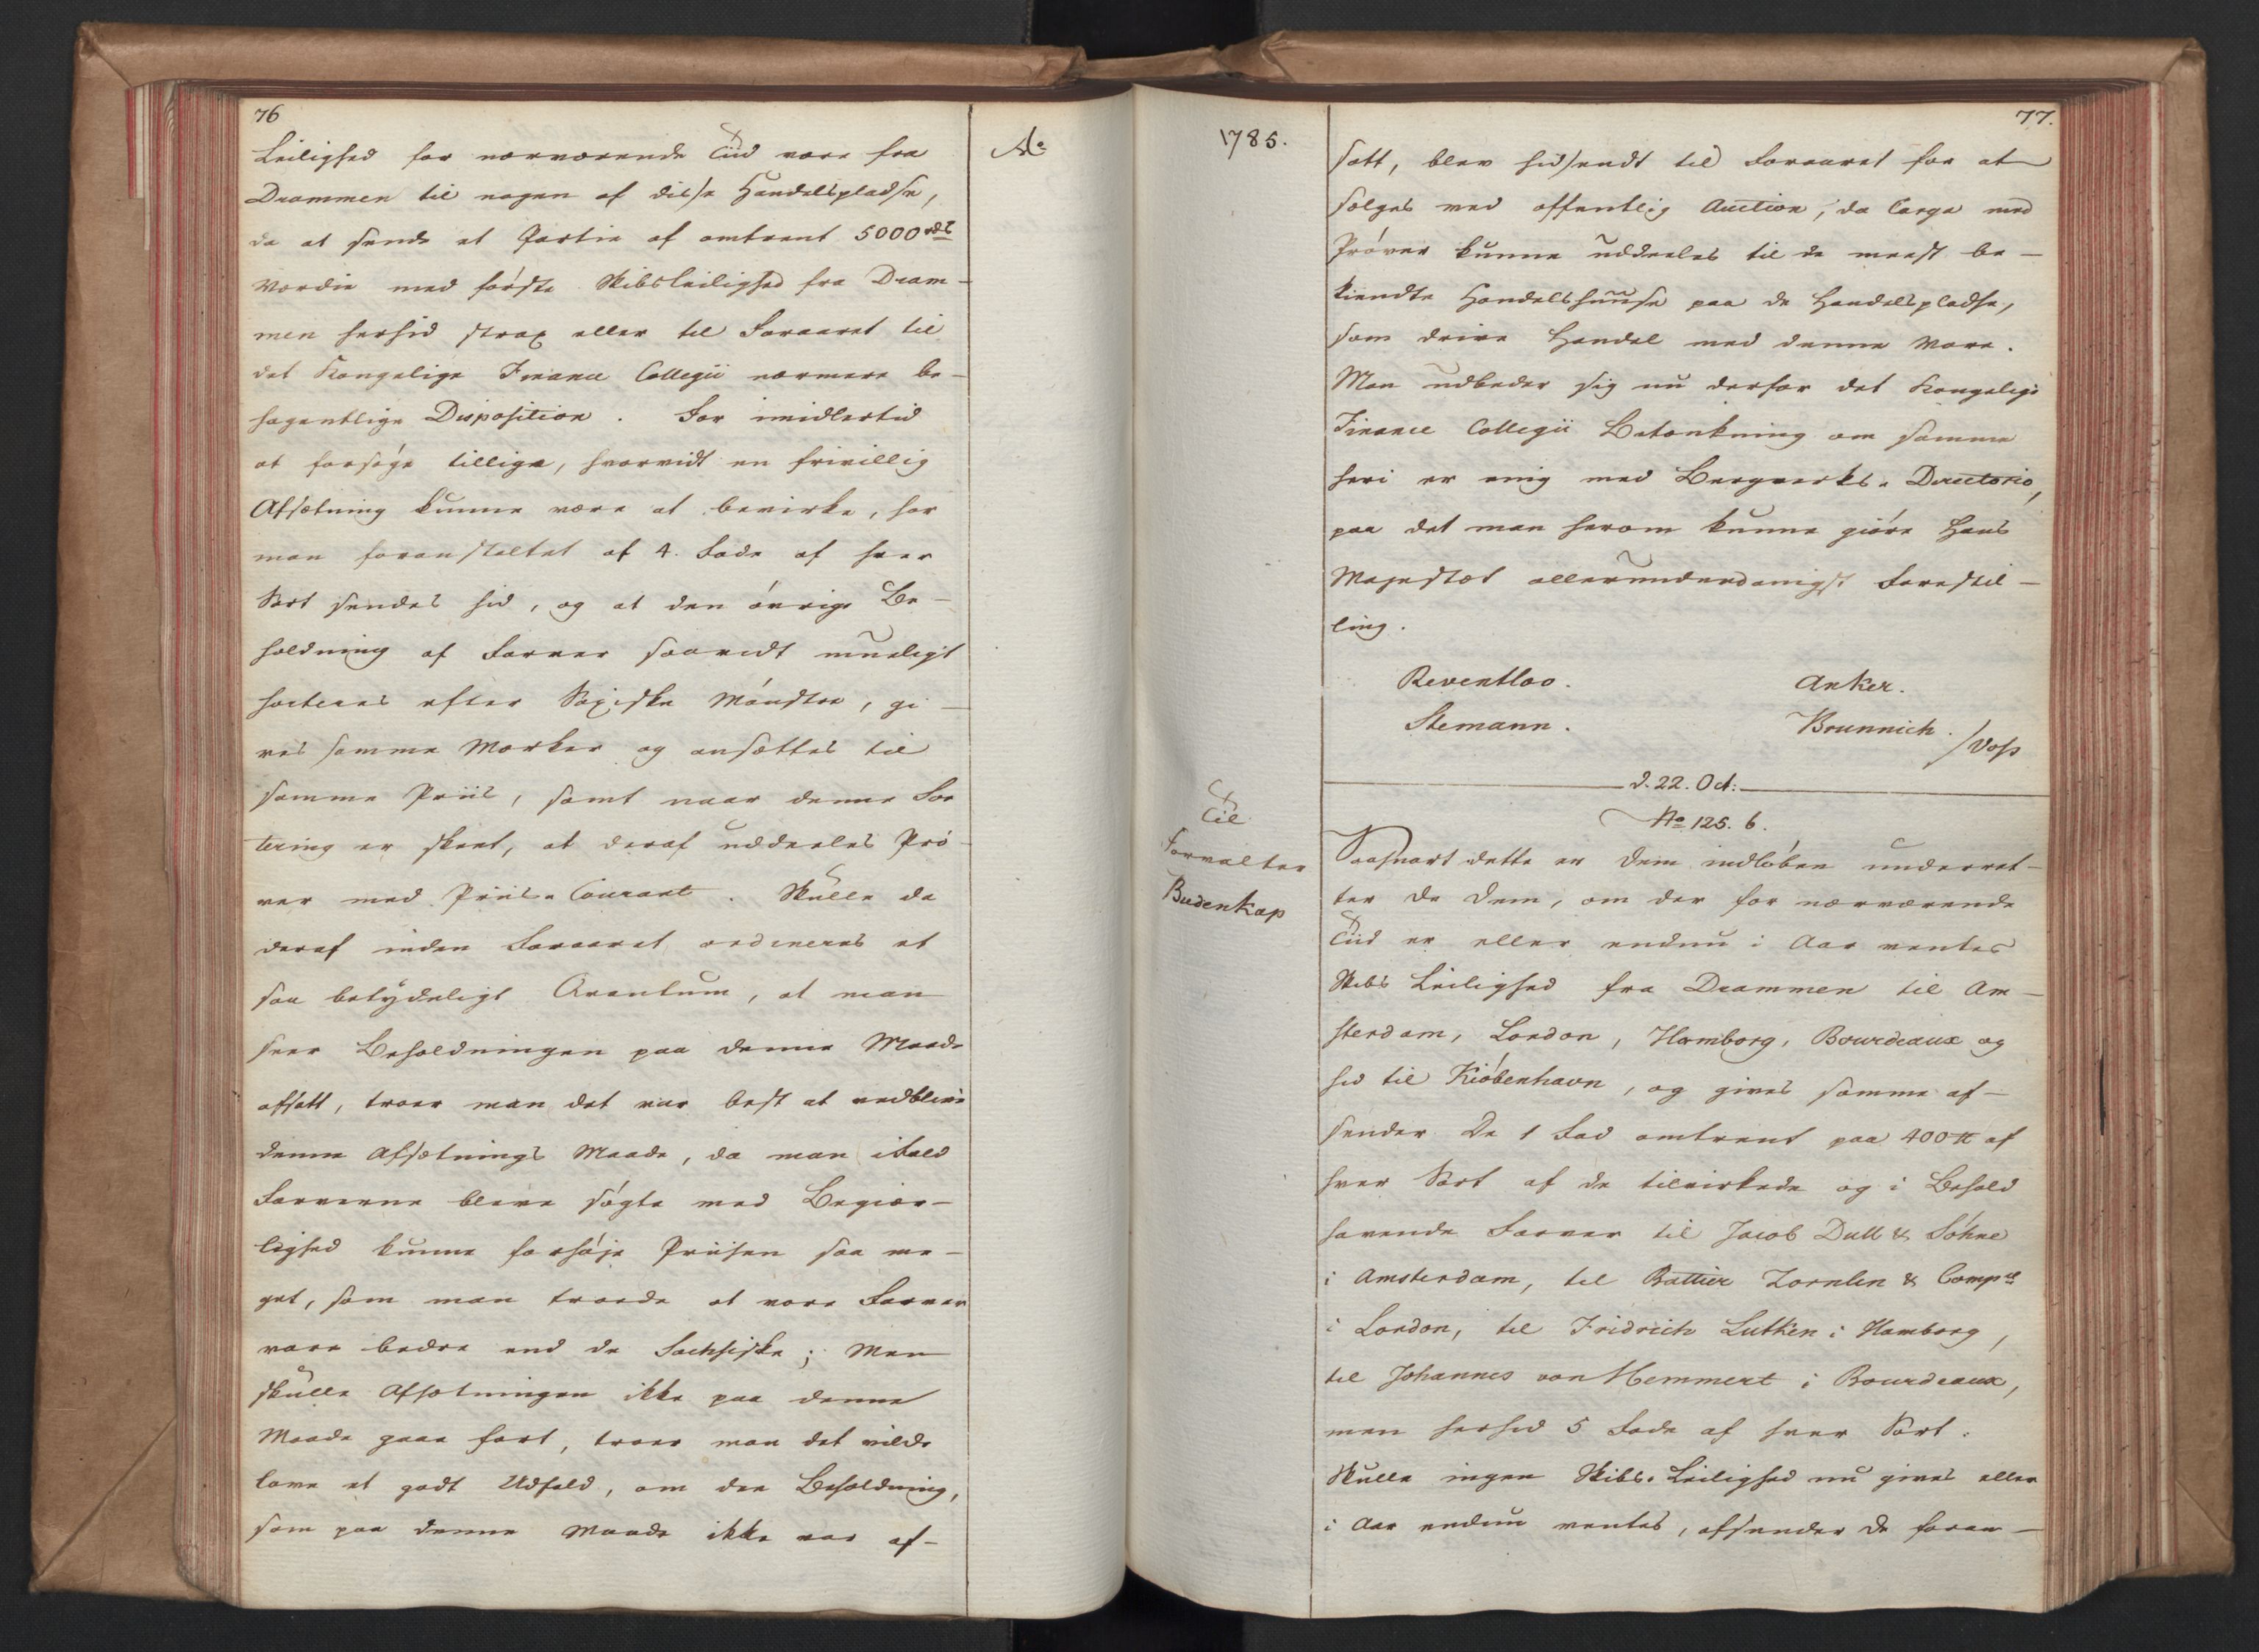 76
Leilighed for nærværende Tiid være fra
Drammen til nogen af disse Handelspladse,
da at sende et Partie af omtrent 5000 rdl
Værdie med første Skibsleilighed fra Dram-
men herhid strax eller til Foraaret til
det Kongelige Finance Collegii nærmere be-
hagentlige Disposition. For imidlertid
at forsøge tillige, hvorvidt en frivillig
Afsætning kunne være at bevirke, har
man foranstaltet at 4. Fade af hver
Sort sendes hid, og at den øvrige Be-
holdning af Farver saavidt mueligt
sorteres efter Saxiske Mønstre, gi-
ves samme Mærker og ansættes til
samme Priis, samt naar denne Sor
tering er skeet, at deraf uddeeles Prø-
ver med Priis-Courant. Skulle da
deraf inden Foraaret ordineres et
saa betydeligt Qvantum, at man
seer Beholdningen paa denne Maade
afsatt, troer man det var best at vedblive
denne Afsætnings Maade, da man ifald
Farverne bleve søgte med Begiær-
lighed kunne forhøje Priisen saa me-
get, som man troede at vore Farver
vare bedre end de Sachsiske; Men
skulle Afsætningen ikke paa denne
Maade gaae fort, troer man det vilde
love et godt Udfald, om den Beholdning,
som paa denne Maade ikke var af-
Ao
1785.
77.
satt, blev hidsendt til Foraaret for at
sælges ved offentlig Auction, da Carge med
Prøver kunne uddeeles til de meest be-
kiendte Handelshuuse paa de Handelspladse,
som drive Handel med denne Vare.
Man udbeder sig nu derfor det Kongelige
Finance Collegii Betænkning om samme
heri er enig med Bergverks-Directorio,
paa det man herom kunne giøre Hans
Majestæt allerunderdanigst Forestil-
ling.
Reventlov. Anker.
Stemann. Brunnich.
/Voss
d. 22. Oct:
No 125. b.
Til
Forvalter
Budenkap
Saasnart dette er Dem indløben underret-
ter De Dem, om der for nærværende
Tiid er eller endnu i Aar ventes
Skibs Leilighed fra Drammen til Am-
sterdam, London, Hamborg, Bourdeaux og
hid til Kiöbenhavn, og gives samme af-
sender De 1 Fad omtrent paa 400 ℔ af
hver Sort af de tilvirkede og i Behold
havende Farver til Jacob Dull & Söhne
i Amsterdam, til Battier Zornlin & Compe
i London, til Fridrich Lutken i Hamborg,
til Johannes von Hemmert i Bourdeaux,
men herhid 5 Fade af hver Sort.
Skulle ingen Skibs-Leilighed nu gives eller
i Aar endnu ventes, afsender De foran-